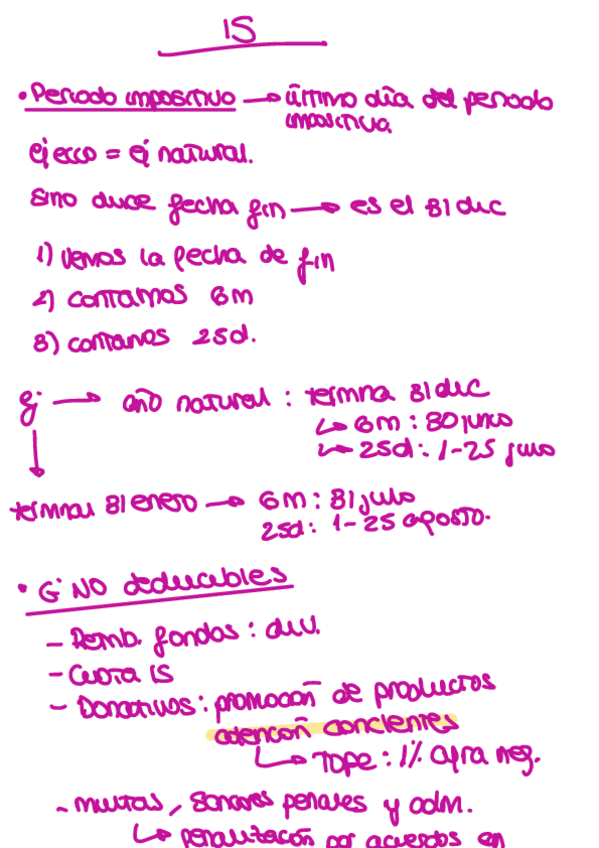 IS
• Periodo impositivo → último día del periodo
impositivo.
ejercco = ej natural.
Sino duce fecha fin → es el 31 dic
1) vemos la fecha de fin
2) contamos 6m
3) contamos 25d.
Ej → año natural : termina 31 dic
↳ 6m : 30 junio
↳ 25d : 1-25 julio
terminar 31 enero → 6m : 31 julio
25d : 1-25 agosto.
• G NO deducibles
- Remb. fondos : div.
- Cuota IS
- Donativos : promoción de productos
atención clientes
↳ TOPE : 1% cifra neg.
- multas, sanciones penales y adm.
↳ penalización por acuerdos en